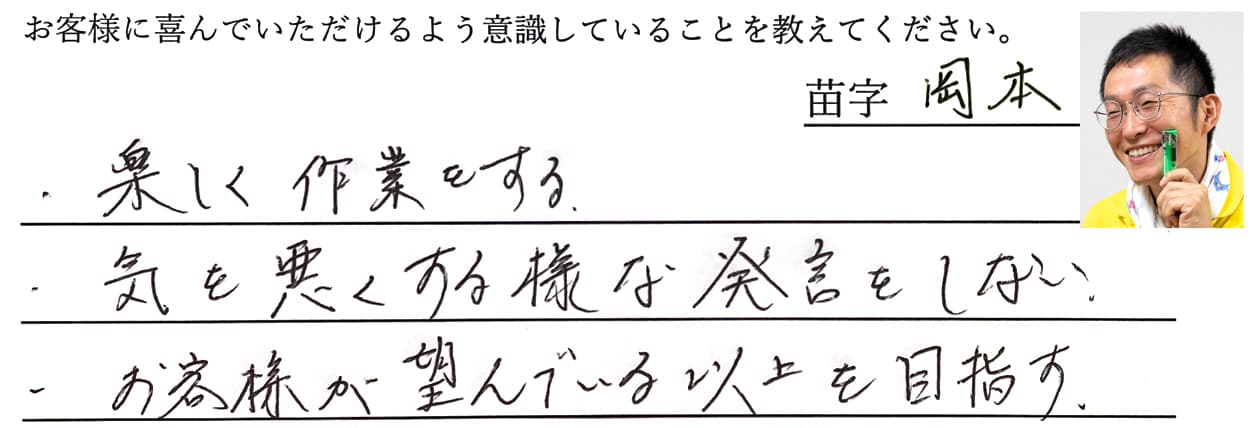 お客様に喜んでいただけるよう意識していることを教えてください。
苗字 岡本
・楽しく作業をする.
・気を悪くする様な発言をしない.
- お客様が望んでいる以上を目指す.